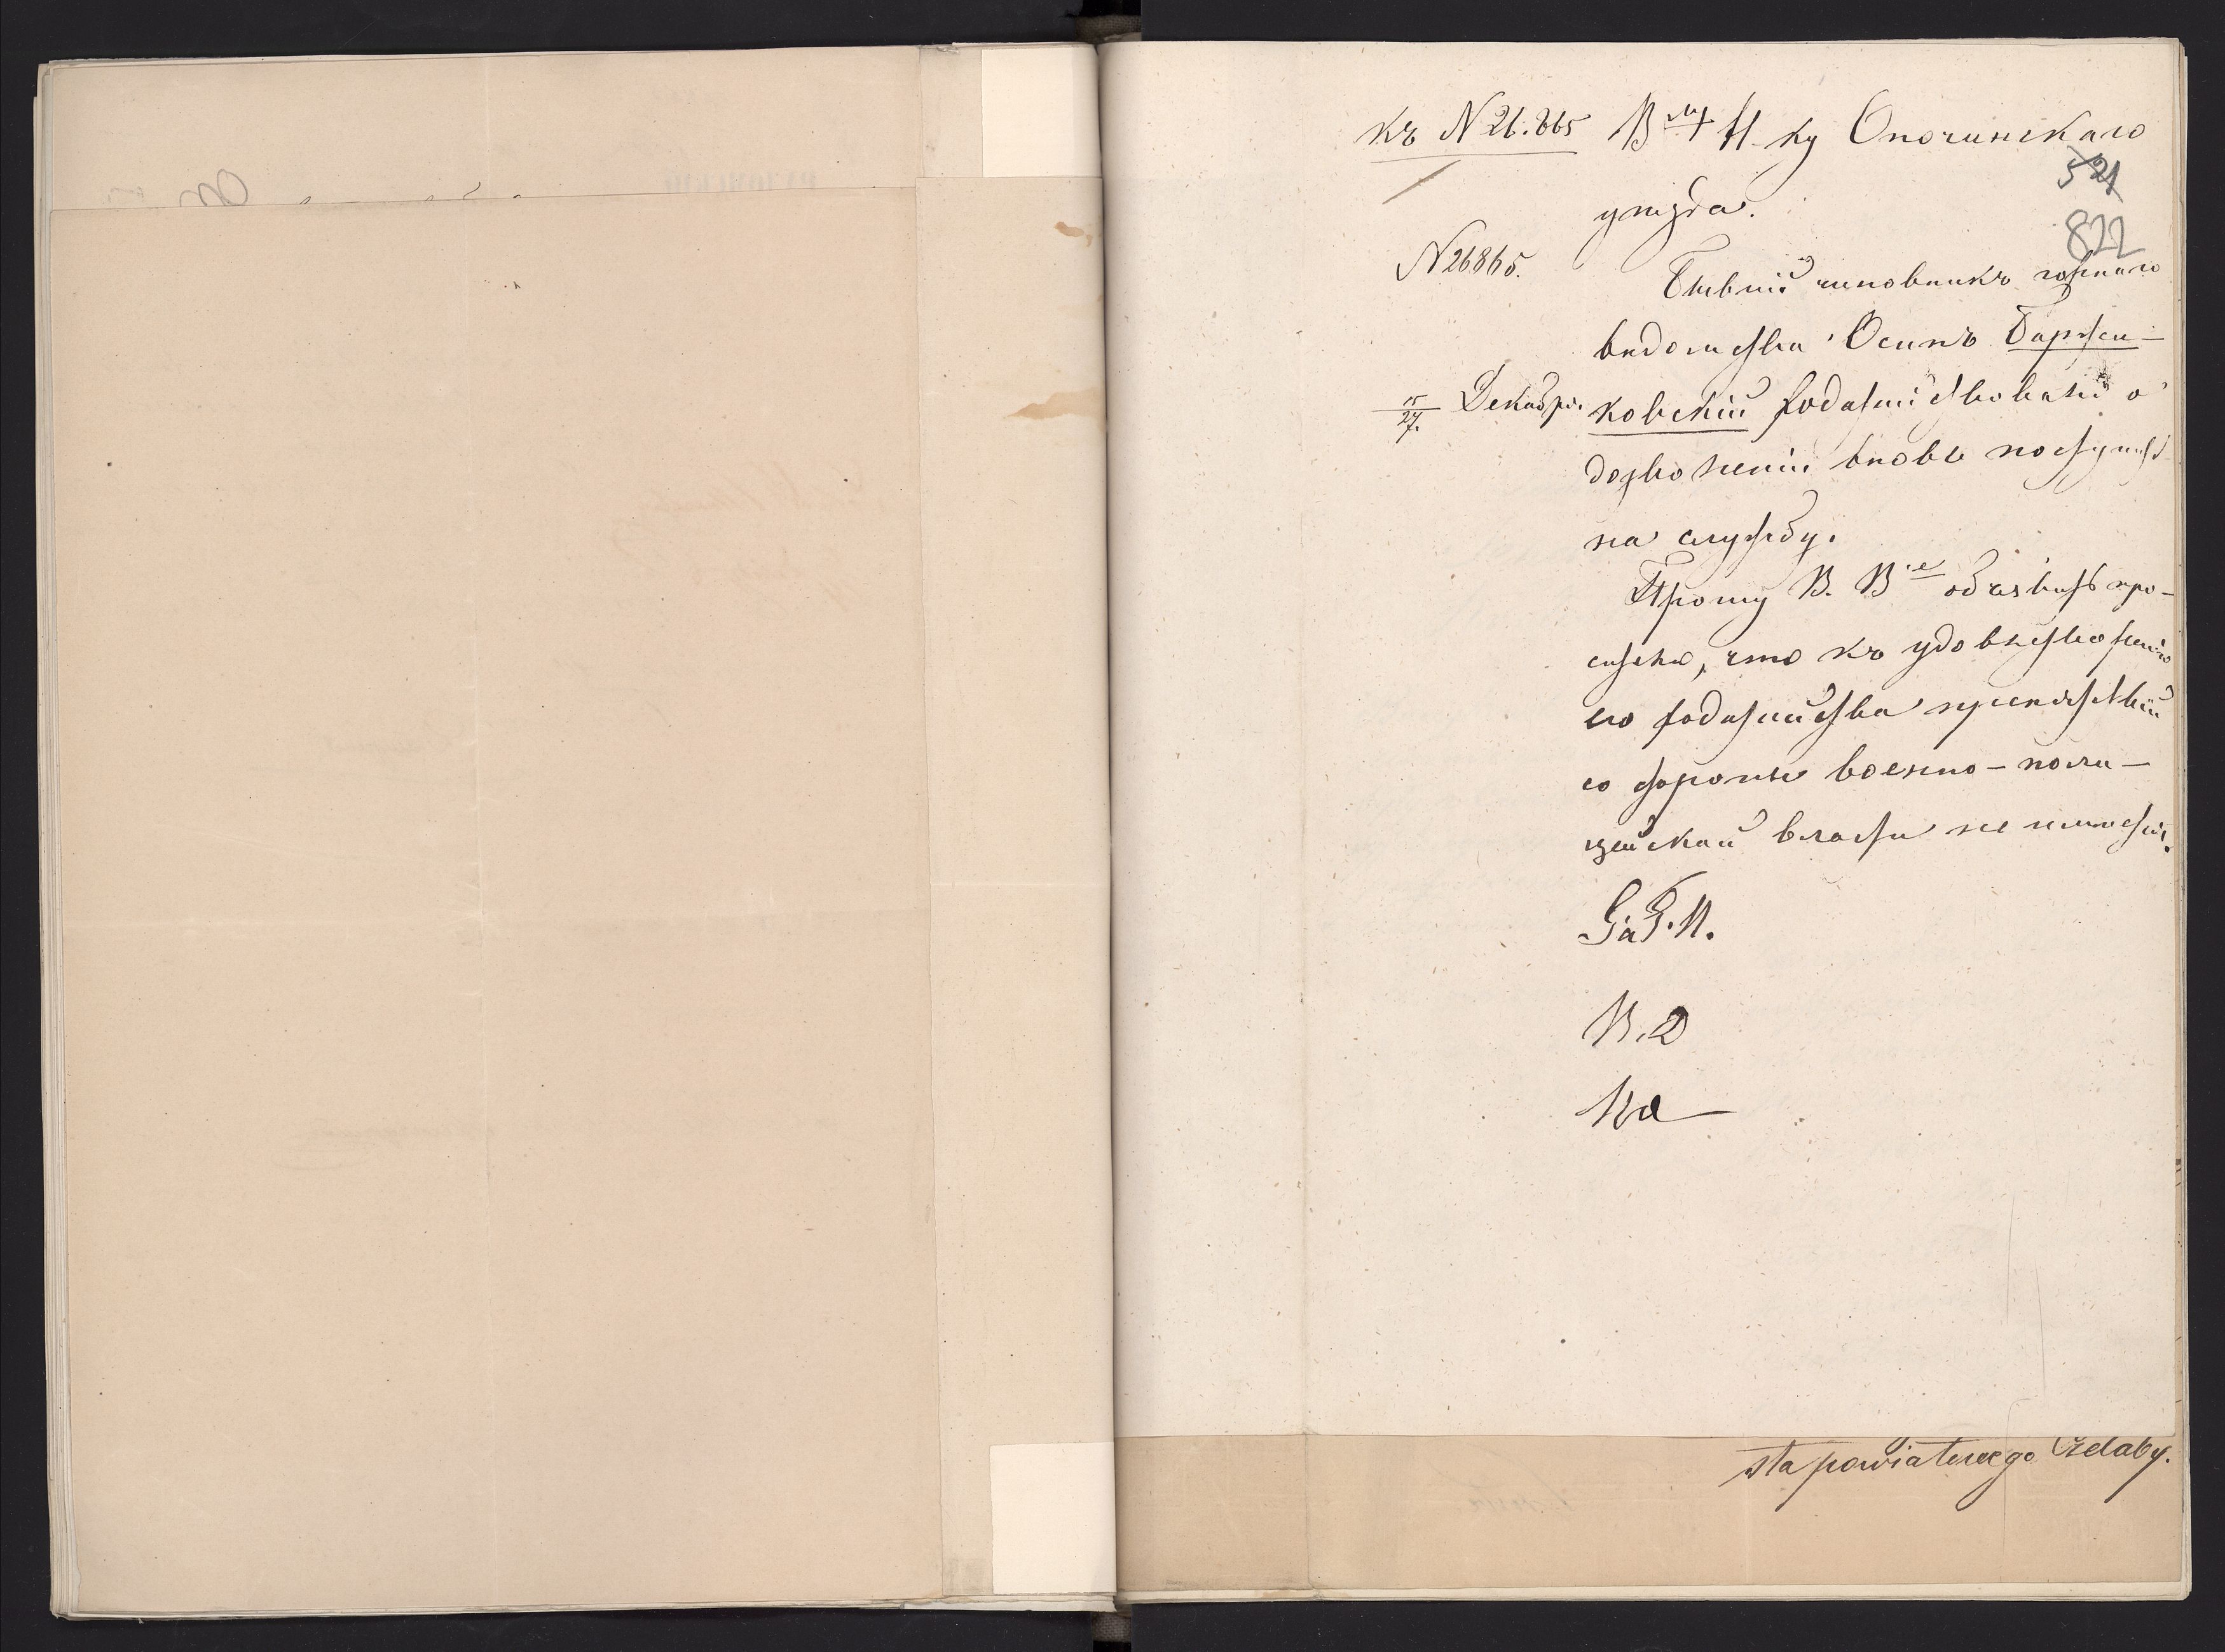 къ N 26.865 В му Н-ку Опочинскаго
521
уѣзда.
822
N 26865.
Бывшій чиновникъ горнаго
вѣдомства Осипъ Баржи-
15/27 Декабря
ковскій ходатайствовалъ о
дозволеніи вновь поступить
на службу.
Прошу В. В е объявить про-
сителю, что къ удовлетворенію
его ходатайства препятствій
со стороны военно-поли-
цейской власти не имѣется.
За В. Н.
В. Д
На
sta powiatowego